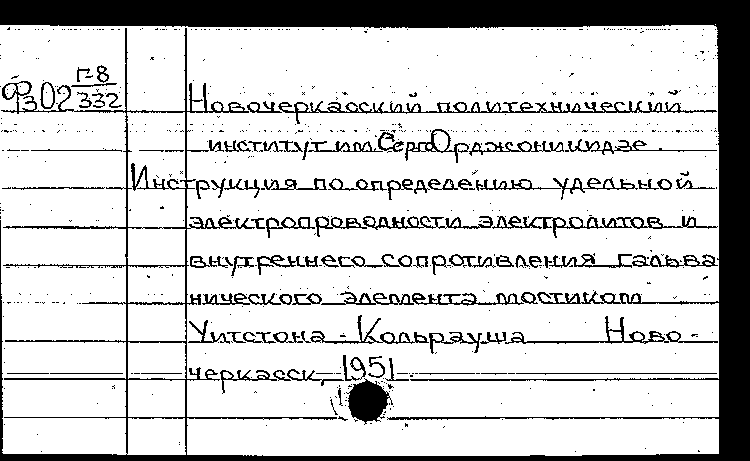 Г-8
Ф302 332
Новочеркасский политехнический
институт им. Серго Орджоникидзе.
Инструкция по определению удельной
электропроводности электролитов и
внутреннего сопротивления гальва
нического элемента мостиком
Уитстона - Кольрауша Ново-
черкасск, 1951